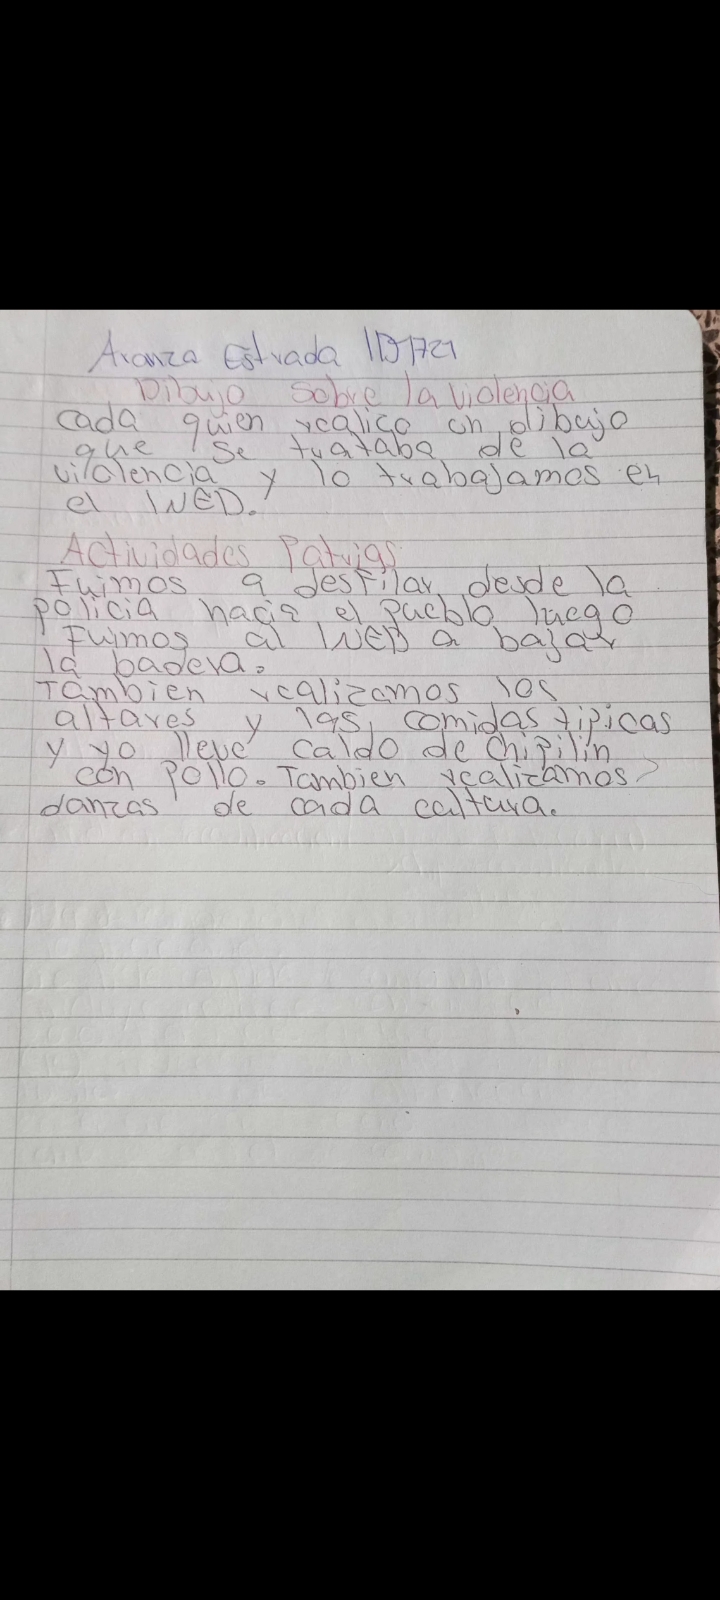 Aranza Estrada 1D1721
Dibujo sobre la violencia
cada quien realico un dibujo
que se trataba de la
violencia y lo trabajamos en
el INED.
Actividades Patrias
Fuimos a desfilar desde la
policia hacia el pueblo luego
Fuimos al INEB a bajar
la badera.
Tambien realizamos los
altares y las comidas tipicas
y yo lleve caldo de chipilin
con pollo. Tambien realizamos
danzas de cada cultura.